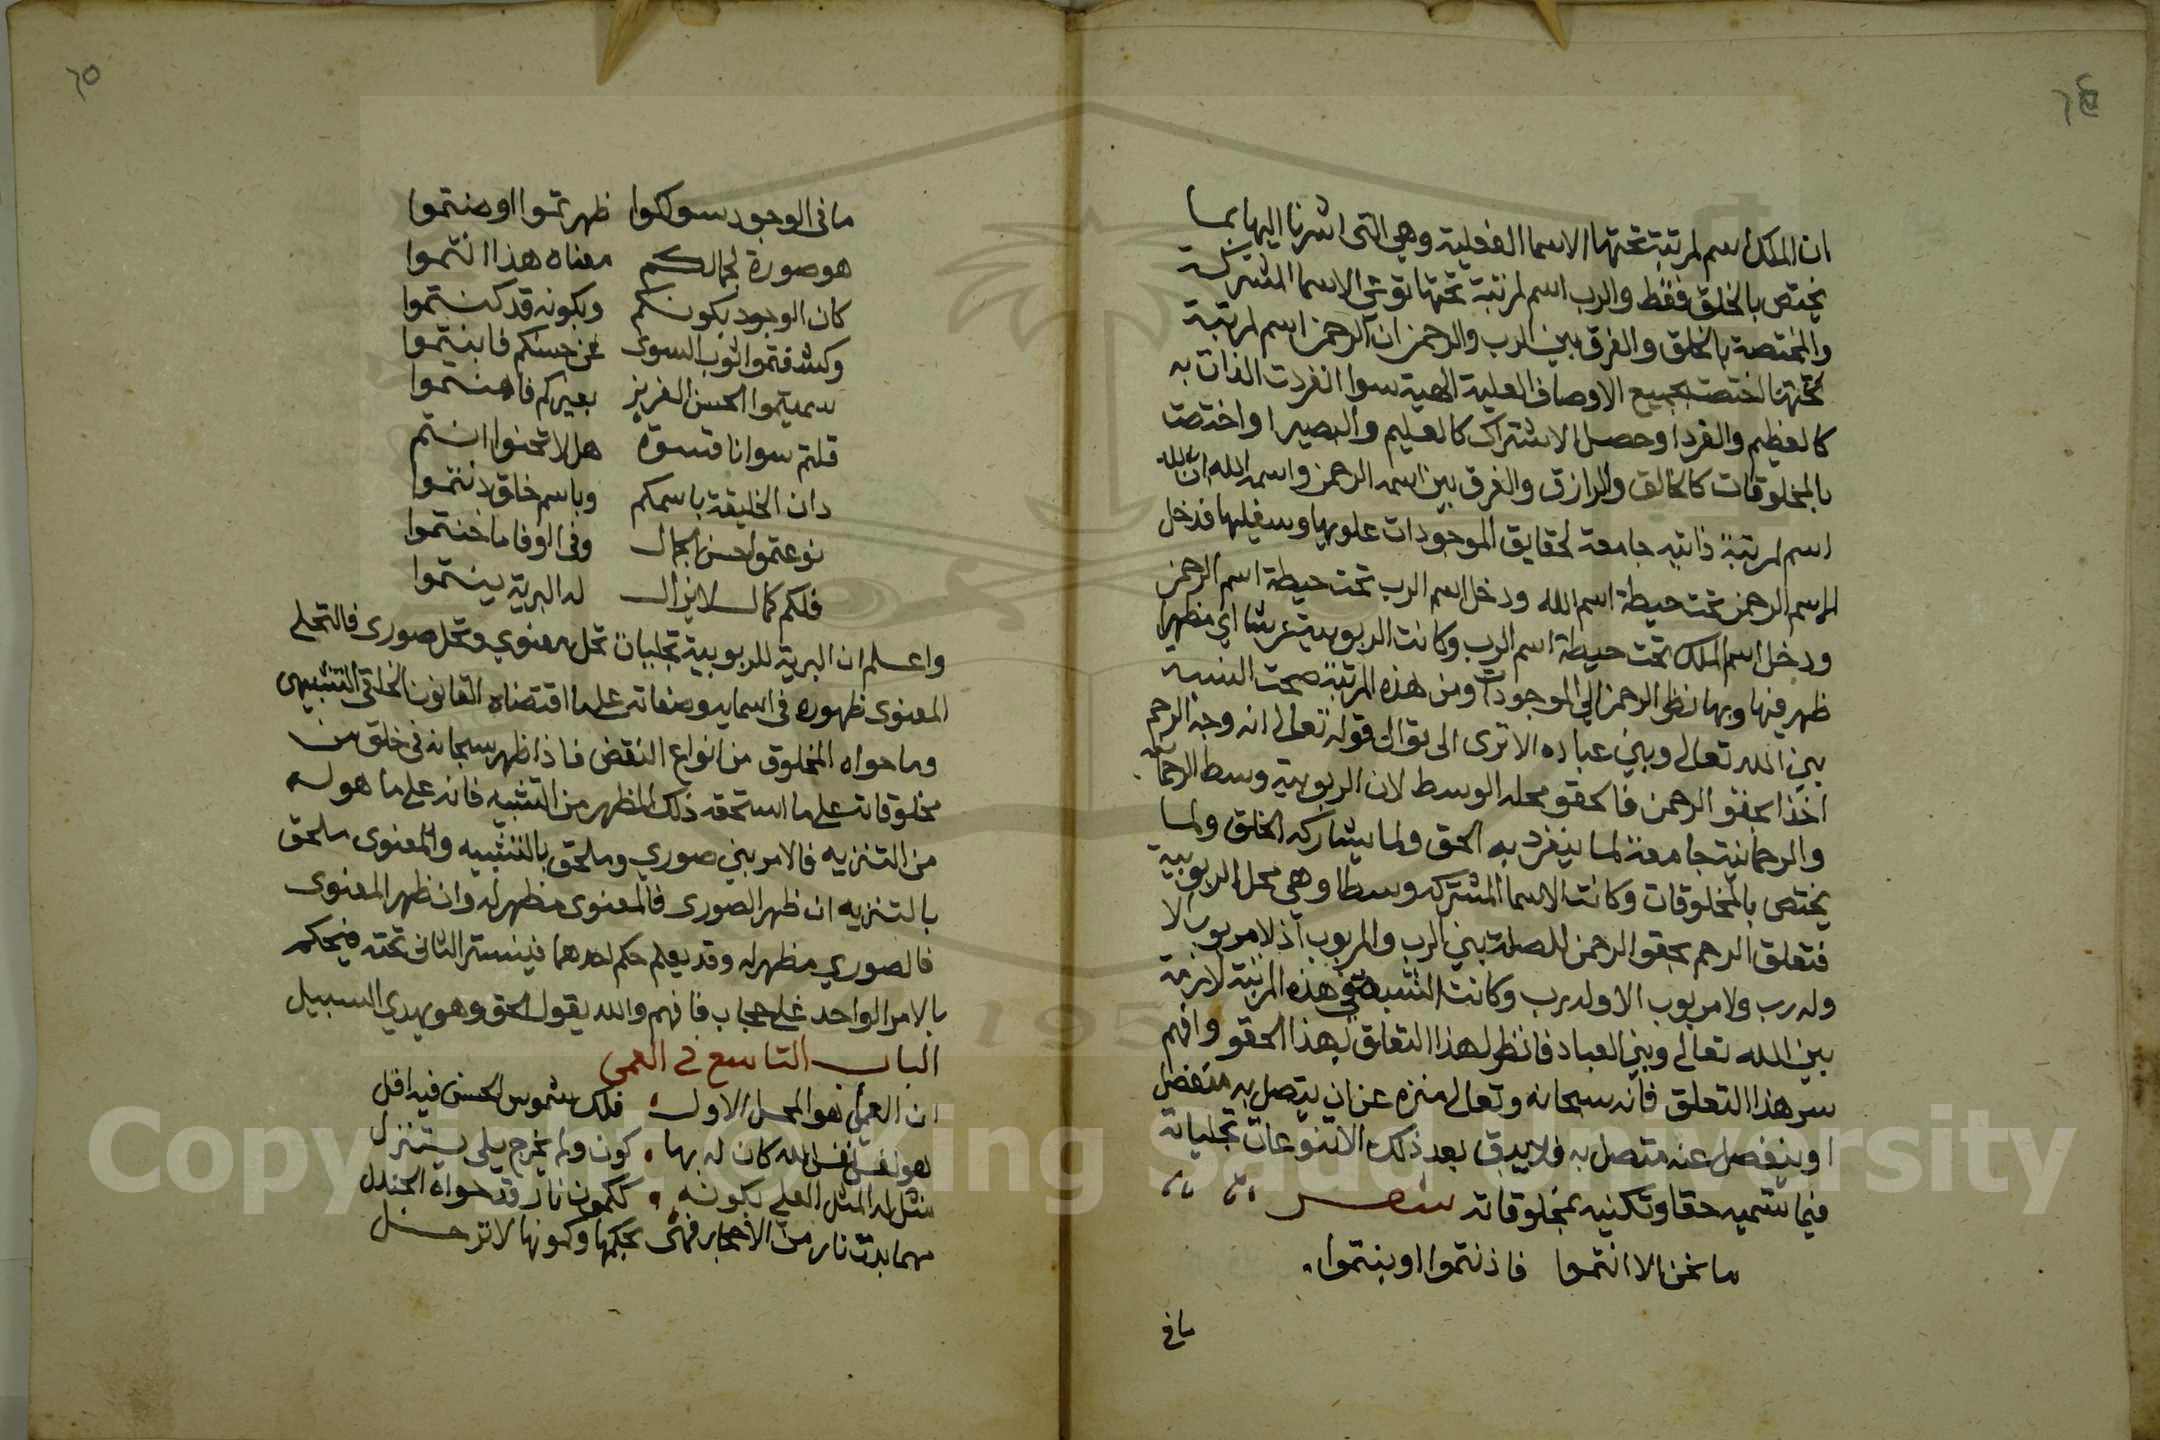 ٦٤
ان الملك اسم لمرتبة تحتها الاسما الفعلية وهي التي اشرنا اليها بما
يختص بالخلق فقط والرب اسم لمرتبة تحتها نوعي الاسما المشتركة
والمختصة بالخلق والفرق بين الرب والرحمن ان الرحمن اسم لمرتبة
تحتها اختصت بجميع الاوصاف العلية الالهية سوا انفردت الذات به
كالعظيم والفرد او حصل الاشتراك كالعليم والبصير او اختصت
بالمخلوقات كالخالق والرازق والفرق بين اسمه الرحمن واسمه الله ان الله
اسم لمرتبة ذاتيه جامعة لحقايق الموجودات علويها وسفليها فدخل
اسم الرحمن تحت حيطة اسم الله ودخل اسم الرب تحت حيطة اسم الرحمن
ودخل اسم الملك تحت حيطة اسم الرب وكانت الربوبية عرشا اي مظهرا
ظهر فيها وبها نظر الرحمن الي الموجودات ومن هذه المرتبة صحت النسبة
بين الله تعالي وبين عباده الاترى الى قوله تعالى انه وجد الرحم
اخذا بحقو الرحمن فالحقو محله الوسط لان الربوبية وسط الرحمانية
والرحمانية جامعة لما ينفرد به الحق ولما يشاركه الخلق ولما
يختص بالمخلوقات وكانت الاسما المشتركه وسطا وهي محل الربوبية
فتعلق الرحم بحقو الرحمن للصلة بين الرب والمربوب اذ لا مربوب الا
وله رب ولا مربوب الا وله رب وكانت النسبة في هذه المرتبة لازمة
بين الله تعالي وبين العباد فانظر لهذا التعلق بهذا الحقو وافهم
سر هذا التعلق فانه سبحانه وتعالي منزه عن ان يتصل به منفصل
او ينفصل عنه متصل به فلا يبق بعد ذلك الا تنوعات تجلياته
فيما نسميه حقا وتكنيه بمخلوقاته شعر
ما نحن الا انتموا فاذنتموا او بنتموا
ما في
٦٥
ما في الوجود سواكموا ظهرتموا او صنتموا
هو صورة لجمالكم معناه هذا انتموا
كان الوجود بكونكم وبكونه قد كنتموا
وكشفتموا ثوب السوى عن حسنكم فابنتموا
سميتموا الحسن العزيز بغيركم فاهنتموا
قلتم سوانا قسوة هل لا تحنوا انتم
دان الخليقة باسمكم وباسم خلق دنتموا
نوعتموا حسن الجمال وفي الوفا ما خنتموا
فلكم كمال لا يزال له البرية ينتموا
واعلم ان البرية للربوبية تجليان تجل معنوي وتجل صوري فالتجلي
المعنوى ظهوره في اسمايه وصفاته علي ما اقتضاه القانون الخلقي التشبيهى
وما حواه المخلوق من انواع النقص فاذا ظهر سبحانه في خلق من
مخلوقاته علي ما استحقه ذلك المظهر من التشبيه فانه علي ما هو له
من التنزيه فالامر بين صوري وملحق بالتشبيه والمعنوى ملحق
بالتنزيه ان ظهر الصورى فالمعنوى مظهر له وان ظهر المعنوى
فالصوري مظهر له وقد يعلم حكم احدهما فيستتر الثاني تحته فيحكم
بالامر الواحد علي حجاب فافهم والله يقول الحق وهو يهدي السبيل
الباب التاسع في العمى
ان العمى هو المحل الاول فلك شموس الحسن فيه افل
هو نفس نفس الله كان له بها كون ولم يخرج يلى يتنزل
مثل له المثل العلي بكونه ككمون نار قد حواه الجندل
مهما بدت نار من الاحجار فهى بحكمها وكمونها لا ترحل